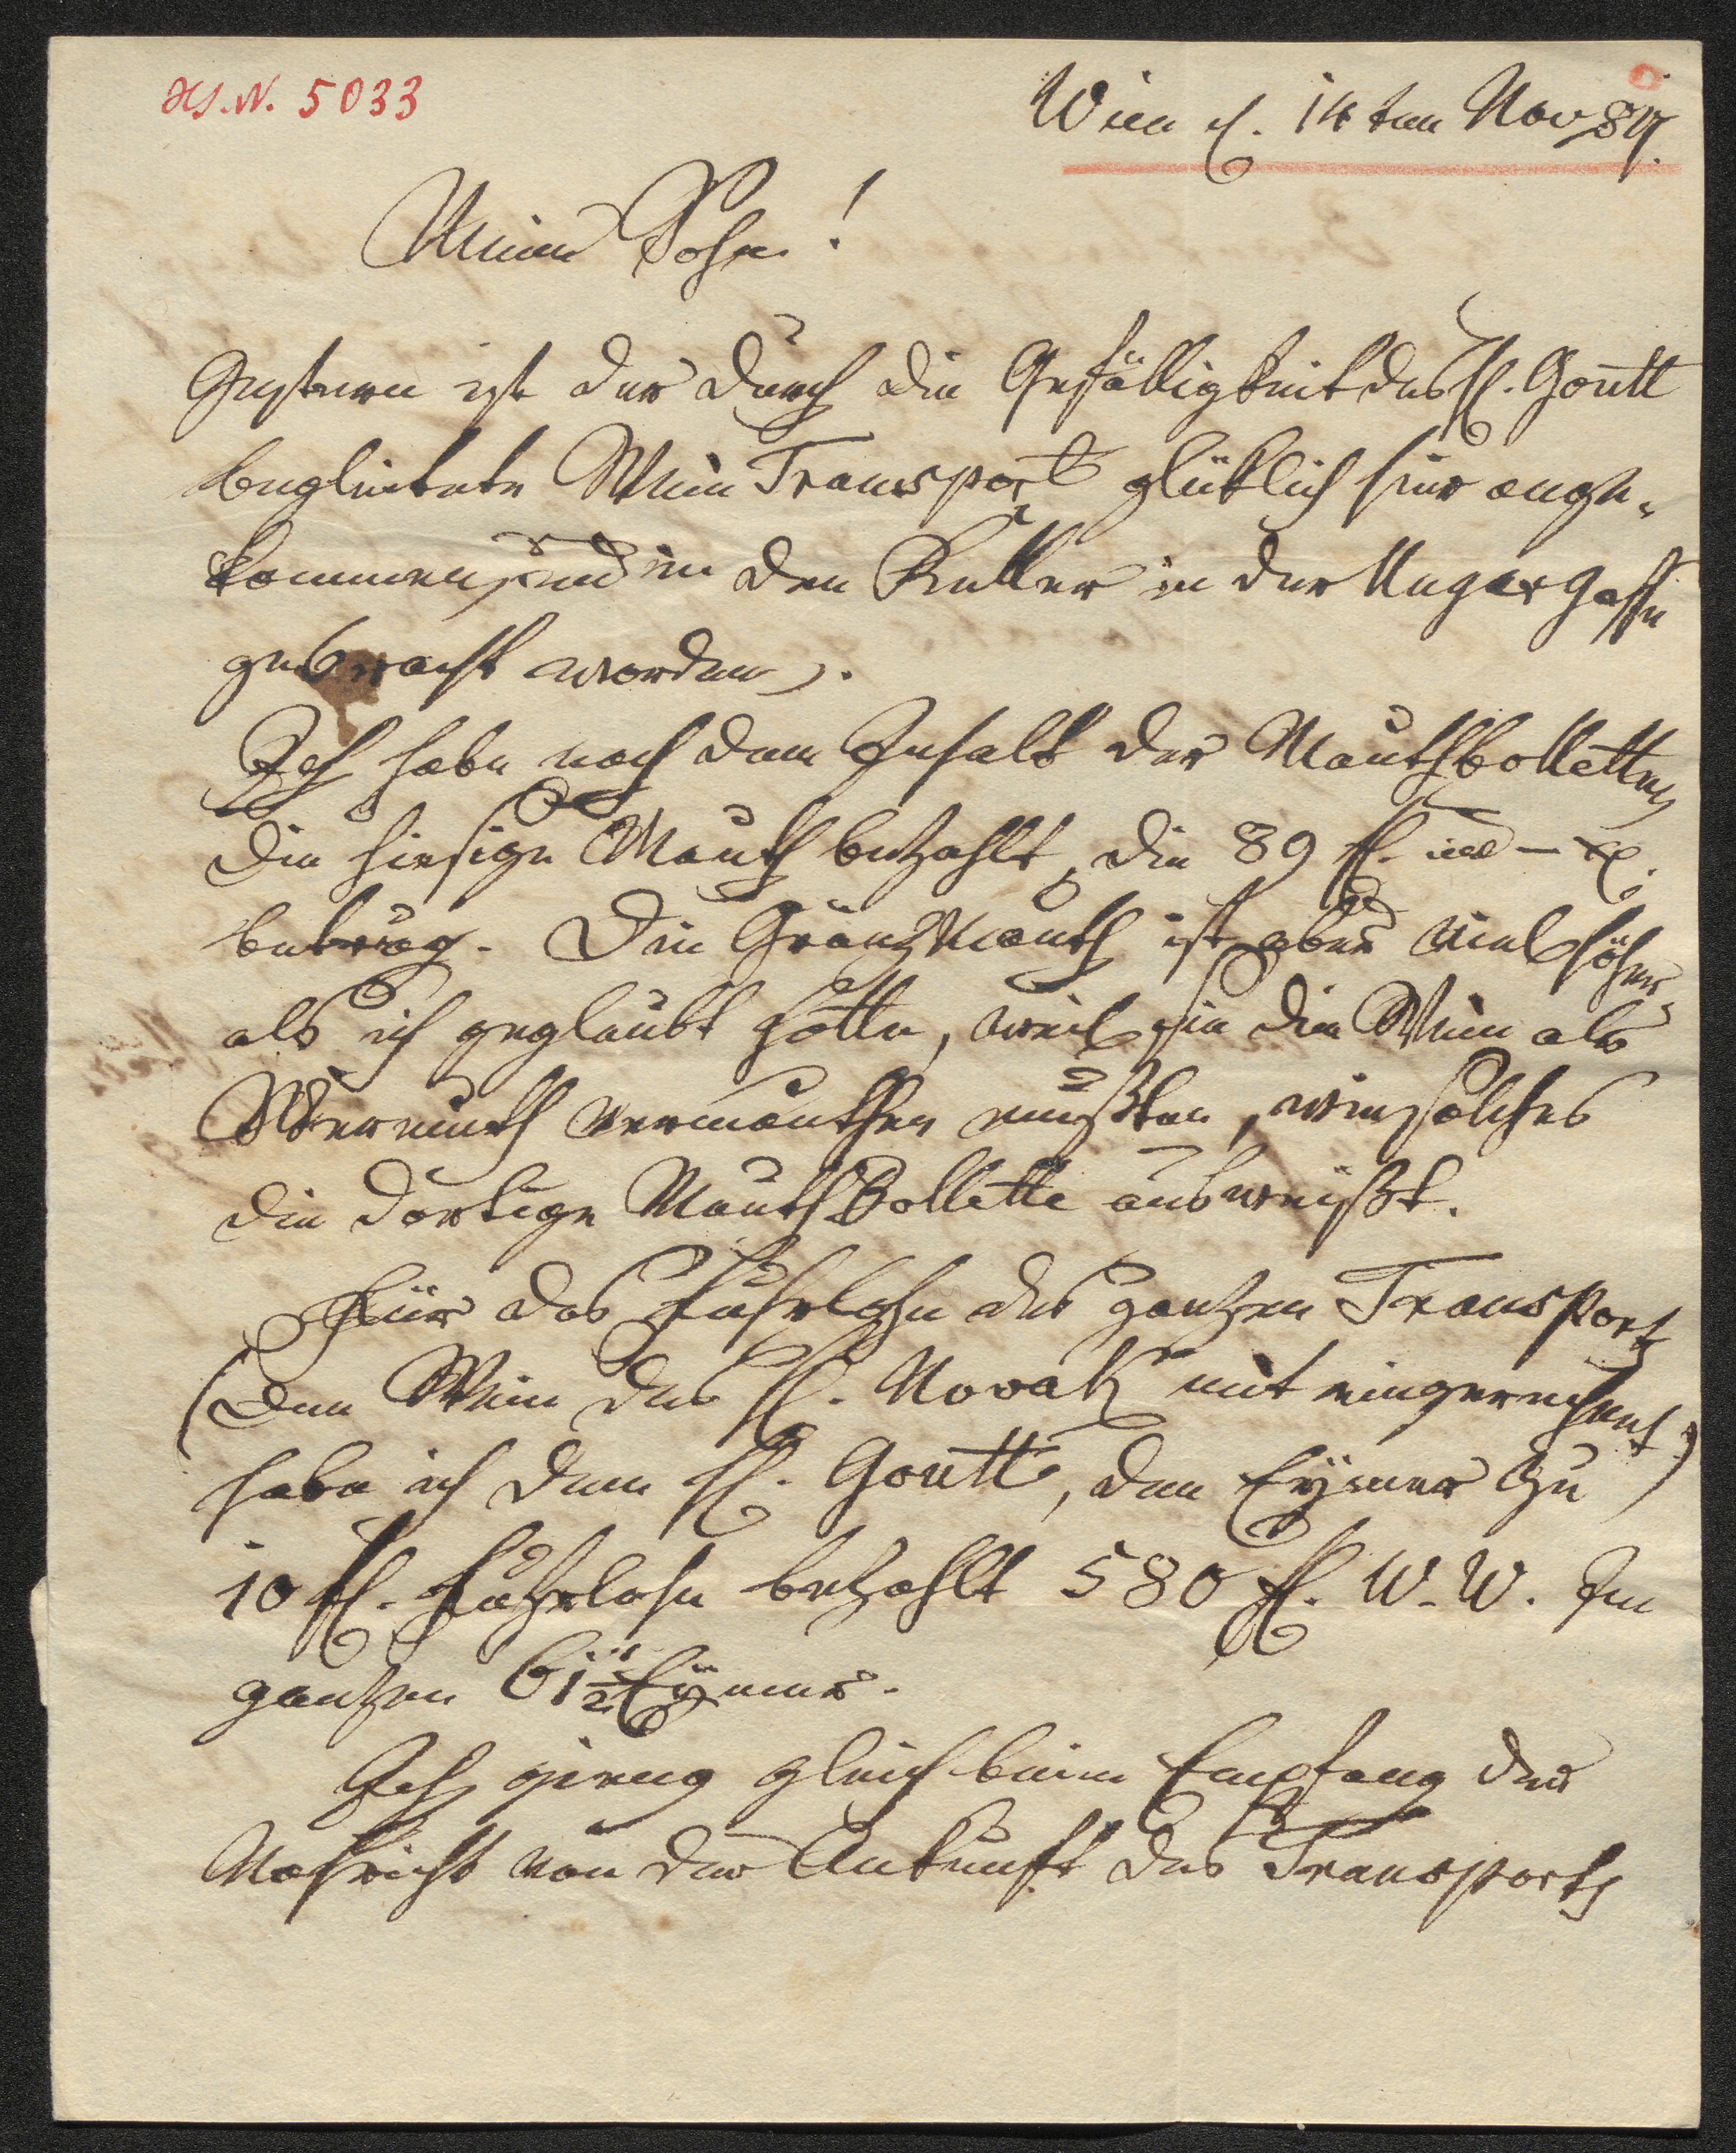 HS.N. 5033
Wien d. 14ten Nov
Mein Sohn!
Gestern ist der durch die Gefälligkeit des H. Goutt
begleitete Wein Transport glüklich hier ange-
kommen, und in den Keller in der Ungargasse
gebracht worden.
Ich habe nach dem Inhalt der Mauthbolletten
die hiesige Mauth bezahlt, die 89 fl. – x.
betrug. Die Gränzmauth ist aber viel höher
als ich geglaubt hätte, weil sie die Wein als
Wermuth vermauthen mußten, wie solches
die dortige Mauth Bollette ausweißt.
Für das Fuhrlohn des ganzen Transport
(den Wein des H. Novak mit eingerechnet)
habe ich dem H. Goutt, den Eymer zu
10 fl. Fuhrlohn bezahlt 580 fl. W. W. Im
ganzen 61 1/2 Eymer.
Ich gieng gleich beim Empfang der
Nachricht von der Ankunft des Transports